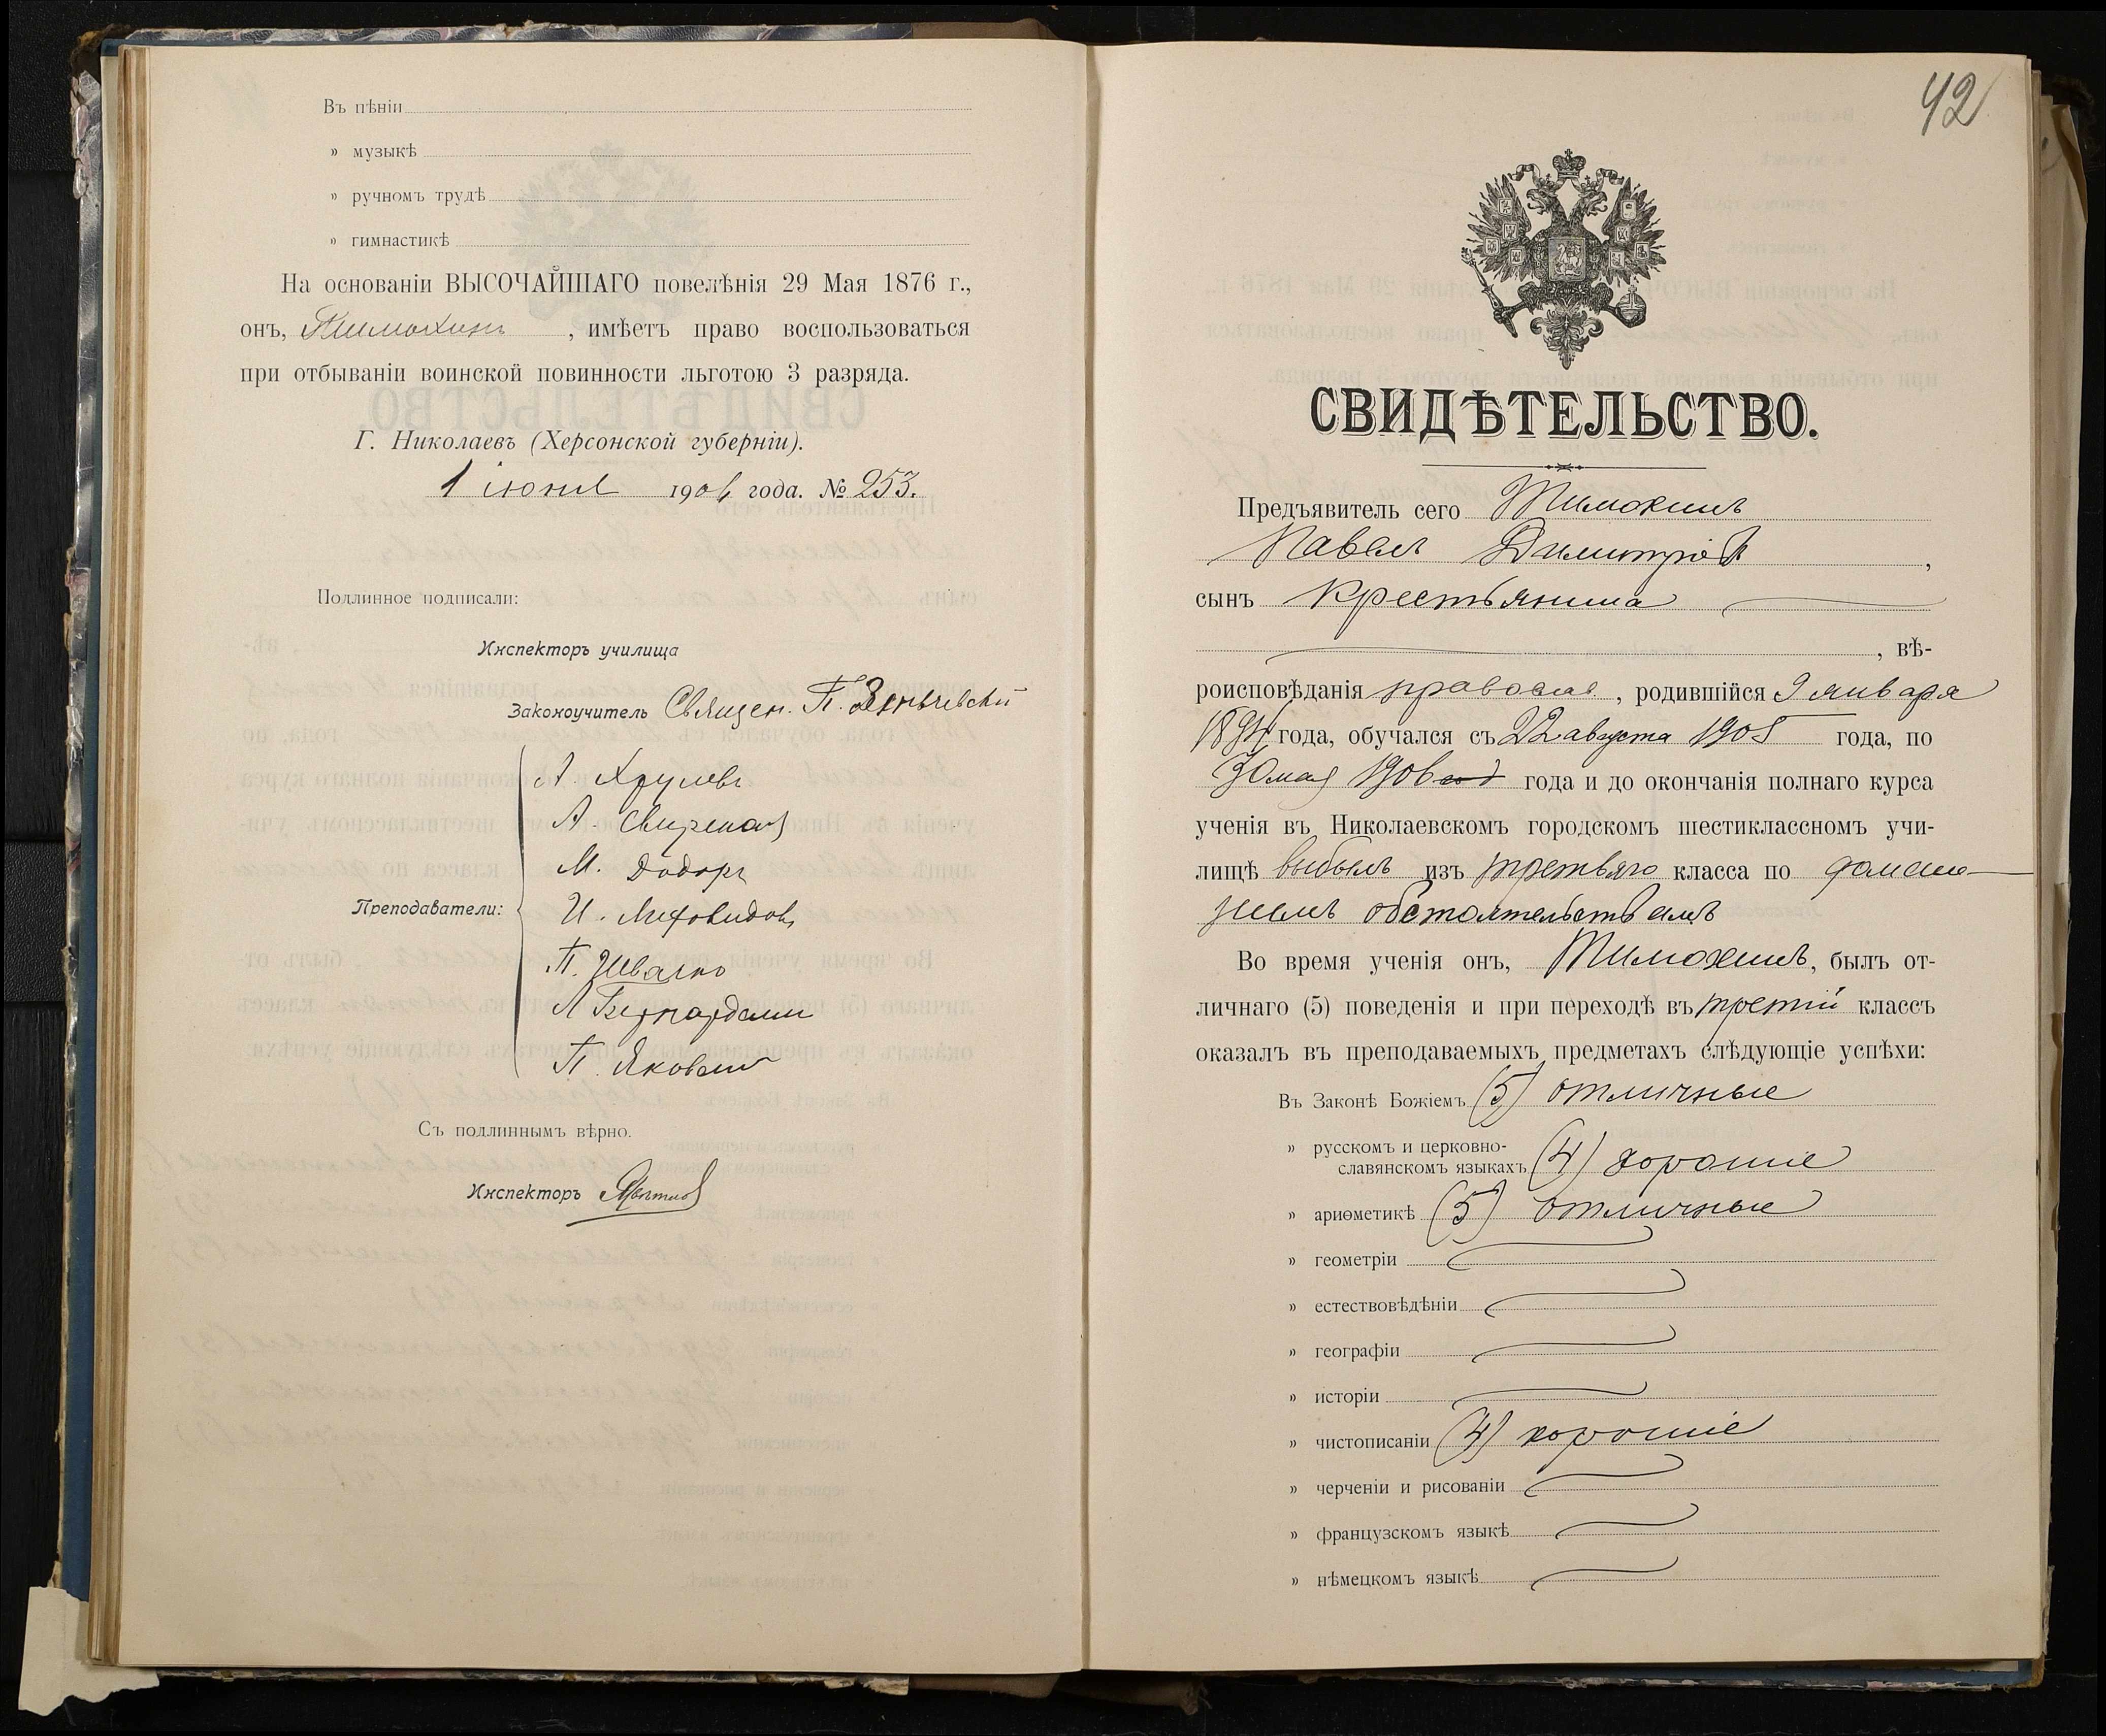 Въ пѣніи
» музыкѣ
» ручномъ трудѣ
» гимнастикѣ
На основаніи ВЫСОЧАЙШАГО повелѣнія 29 Мая 1876 г.,
онъ, Тимохинъ, имѣетъ право воспользоваться
при отбываніи воинской повинности льготою 3 разряда.
Г. Николаевъ (Херсонской губерніи).
1 іюня 1906 года. № 253.
Подлинное подписали:
Инспекторъ училища
Законоучитель Священ. П.
А. Хрулевъ
А.
М. Додоръ
И.
П. Швачко
Л Бернардацци
П.
Преподаватели:
Съ подлиннымъ вѣрно.
Инспекторъ
42
СВИДѢТЕЛЬСТВО.
Предъявитель сего Тимохинъ
Павелъ Димитріев,
сынъ крестьянина
, вѣ-
роисповѣданія православ., родившійся 9 января
1894 года, обучался съ 22 августа 1905 года, по
30 мая 1906 года и до окончанія полнаго курса
ученія въ Николаевскомъ городскомъ шестиклассномъ учи-
лищѣ выбылъ изъ третьяго класса по домаш-
нимъ обстоятельствамъ
Во время ученія онъ, Тимохинъ, былъ от-
личнаго (5) поведенія и при переходѣ въ третій классъ
оказалъ въ преподаваемыхъ предметахъ слѣдующіе успѣхи:
Въ Законѣ Божіемъ (5) отличные
» русскомъ и церковно-
славянскомъ языкахъ (4) хорошіе
» ариѳметикѣ (5) отличные
» геометріи
» естествовѣдѣніи
» географіи
» исторіи
» чистописаніи (4) хорошіе
» черченіи и рисованіи
» французскомъ языкѣ
» нѣмецкомъ языкѣ